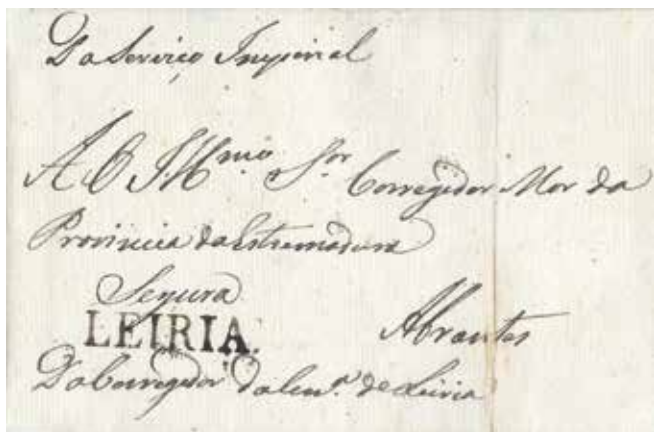 Do Serviço Imperial
Ao Illmo. Sor. Corregedor Mor da
Provincia da Estremadura
Segura
LEIRIA. Abrantes
Do Corregedor da Com.ca de Leiria